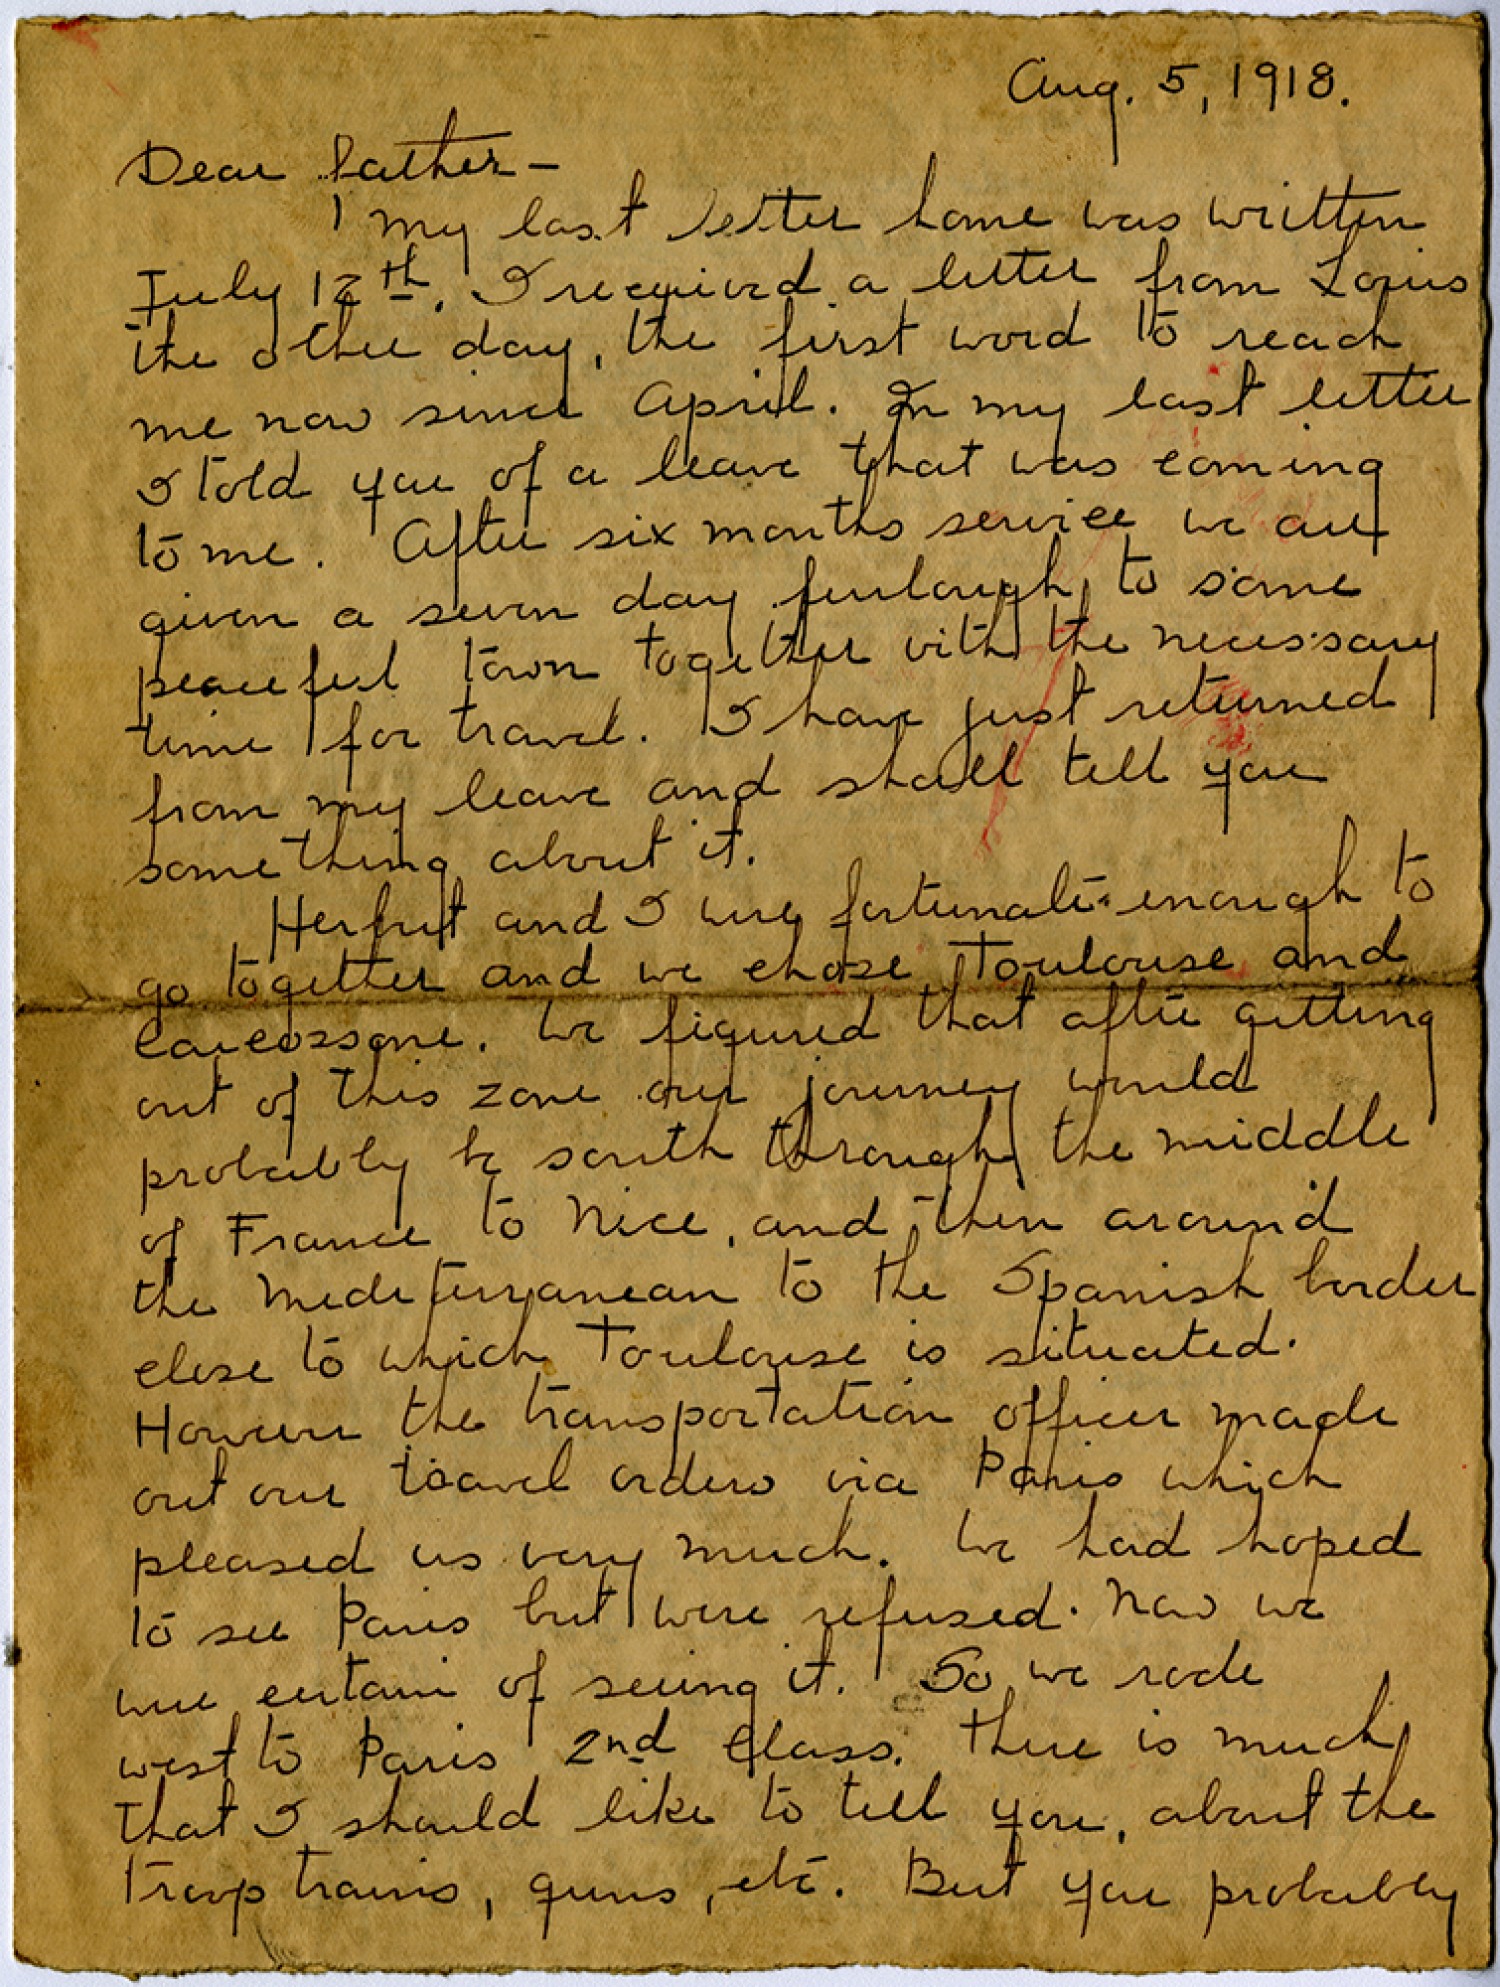 Aug. 5, 1918.
Dear Father—
My last letter home was written
July 12th. I received a letter from Louis
the other day, the first word to reach
me now since April. In my last letter
I told you of a leave that was coming
to me. After six months service we are
given a seven day furlough to some
peaceful town together with the necessary
time for travel. I have just returned
from my leave and shall tell you
something about it.
Herbert and I were fortunate enough to
go together and we chose Toulouse and
Carcossone. We figured that after getting
out of this zone our journey would
probably be south through the middle
of France to Nice, and then around
the Mediterranean to the Spanish border
close to which Toulouse is situated.
However the transportation officer made
out our travel orders via Paris which
pleased us very much. We had hoped
to see Paris but were refused. Now we
were certain of seeing it. So we rode
west to Paris 2nd Class. There is much
that I should like to tell you, about the
troop trains, guns, etc. But you probably